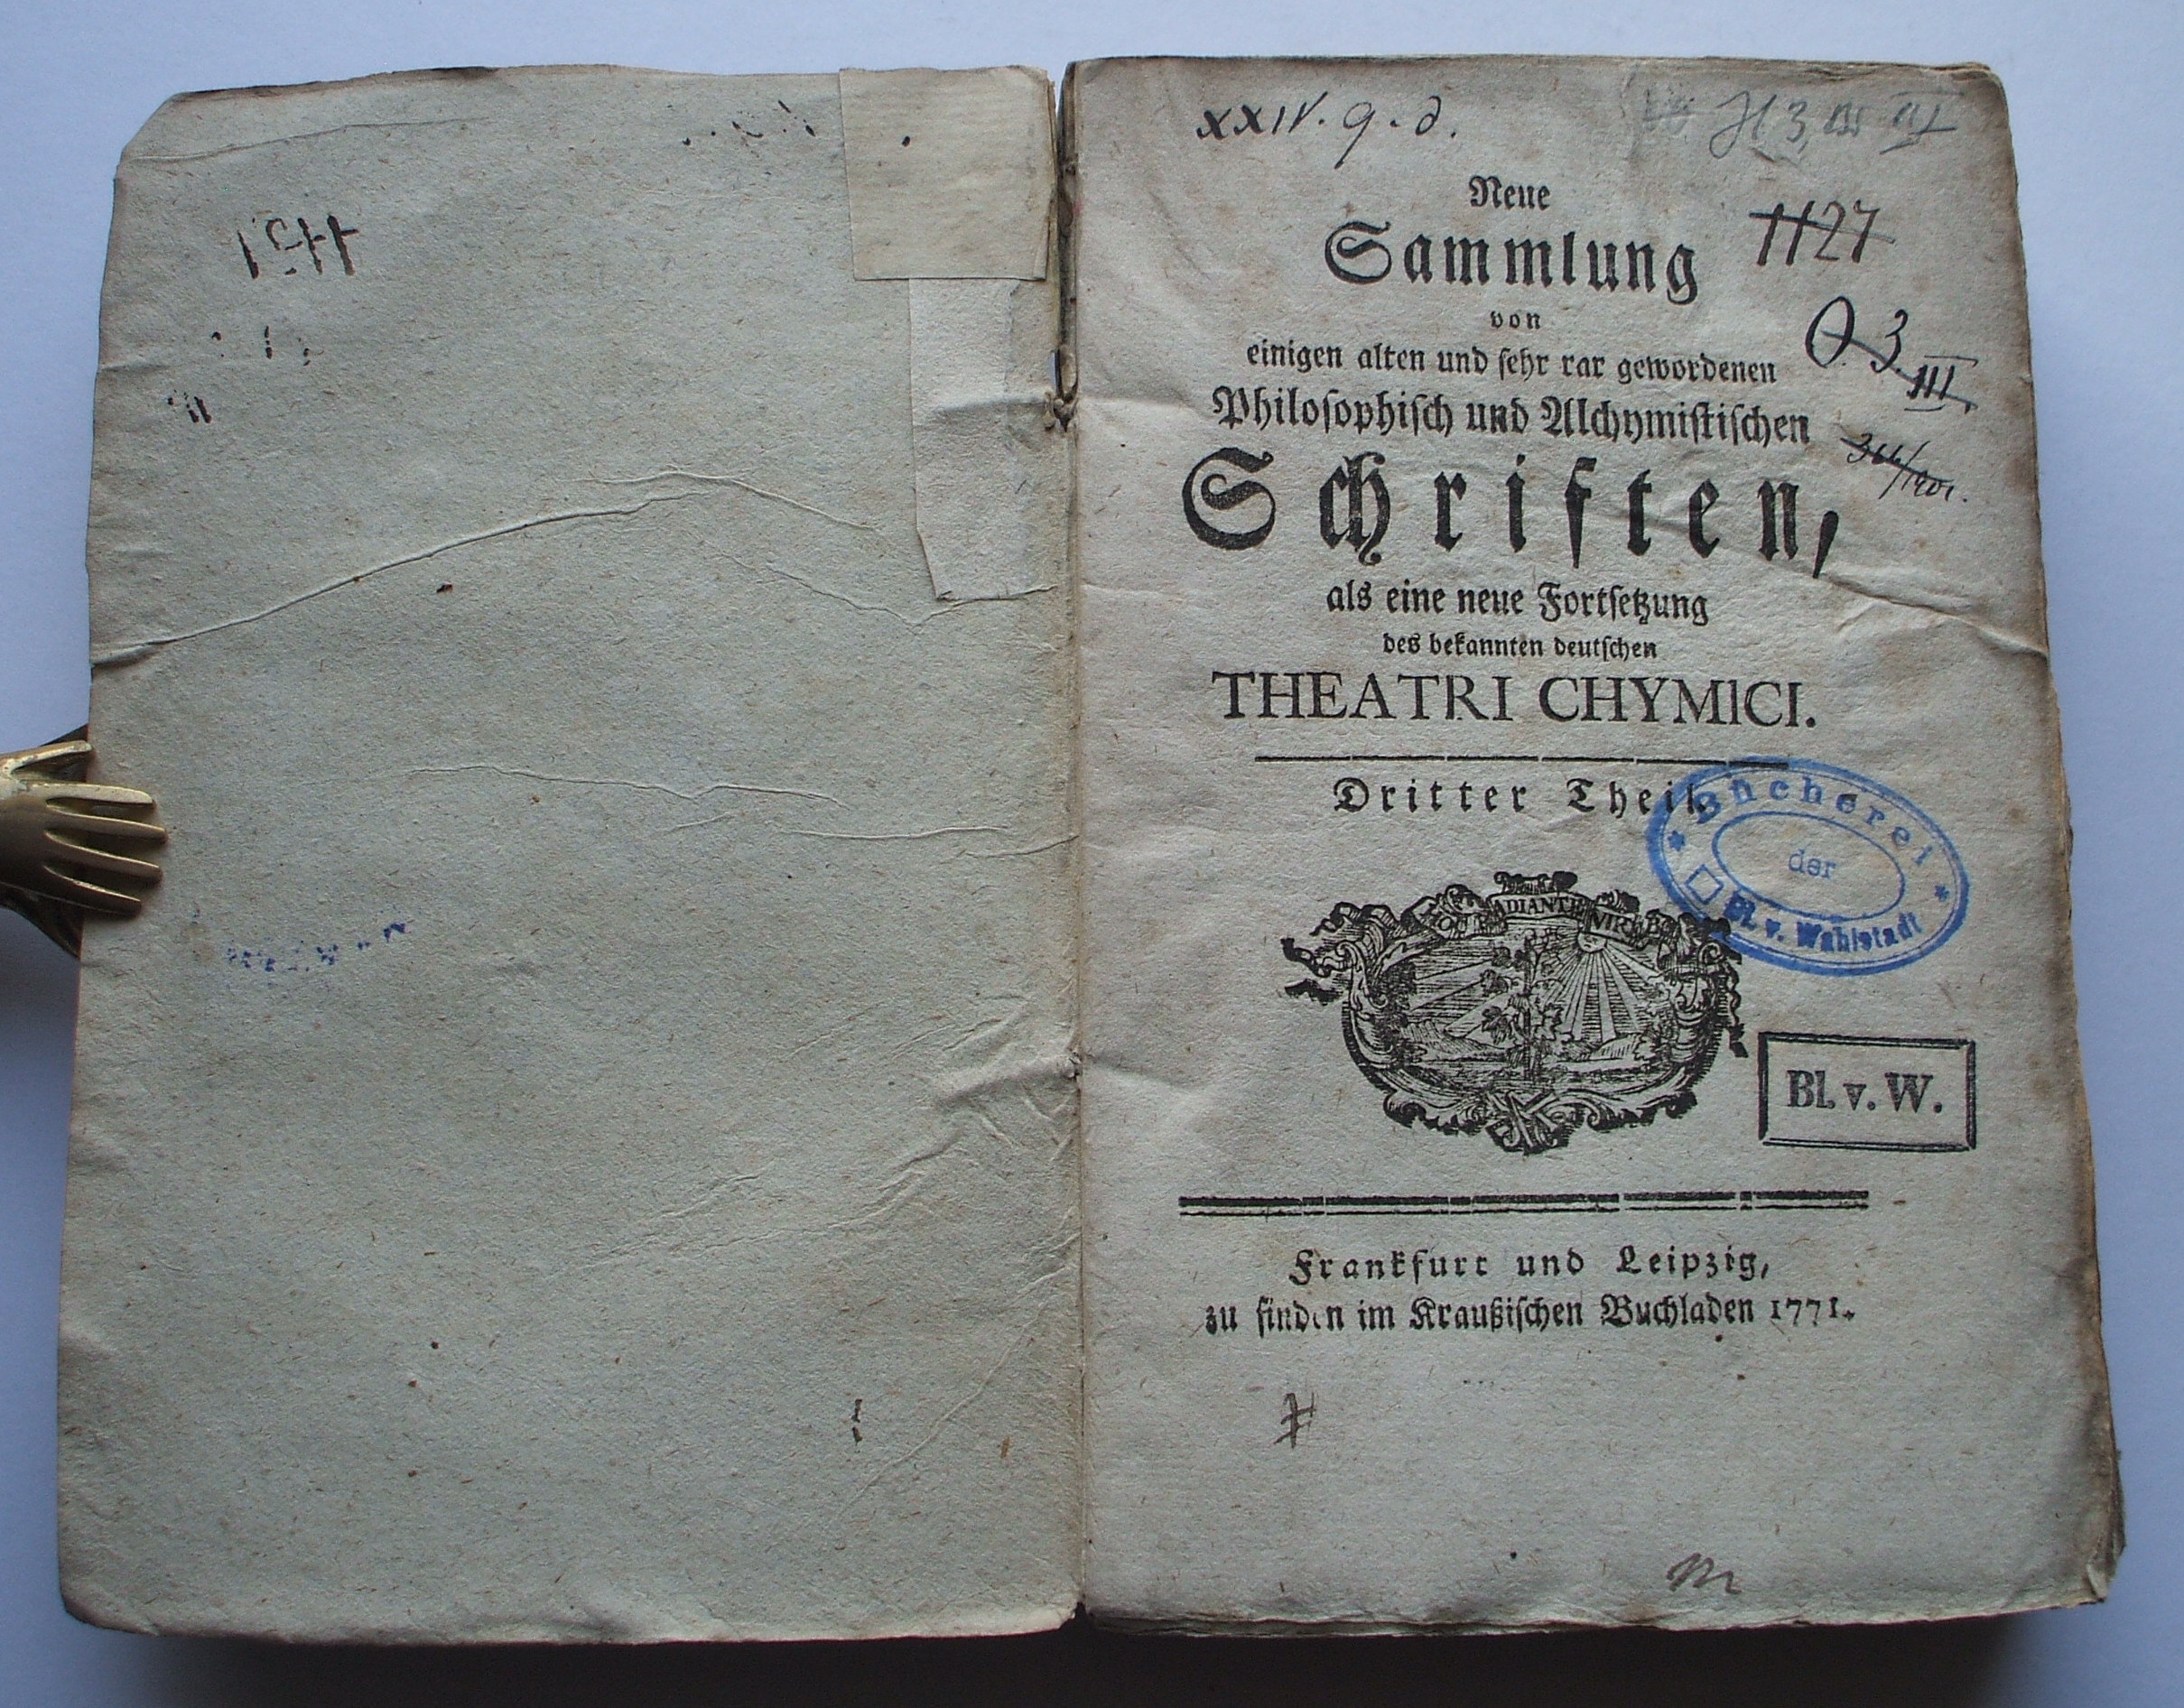 XXIV. q. d.
Neue
Sammlung
1127
von
einigen alten und sehr rar gewordenen
O. 3.
III.
Philosophisch und Alchymistischen
Schriften,
als eine neue Fortsetzung
des bekannten deutschen
THEATRI CHYMICI.
Dritter Theil.
Bücherei
der
Bl. v. Wahlstadt
RADIANTE VIREBO
Bl. v. W.
Frankfurt und Leipzig,
zu finden im Kraußischen Buchladen 1771.